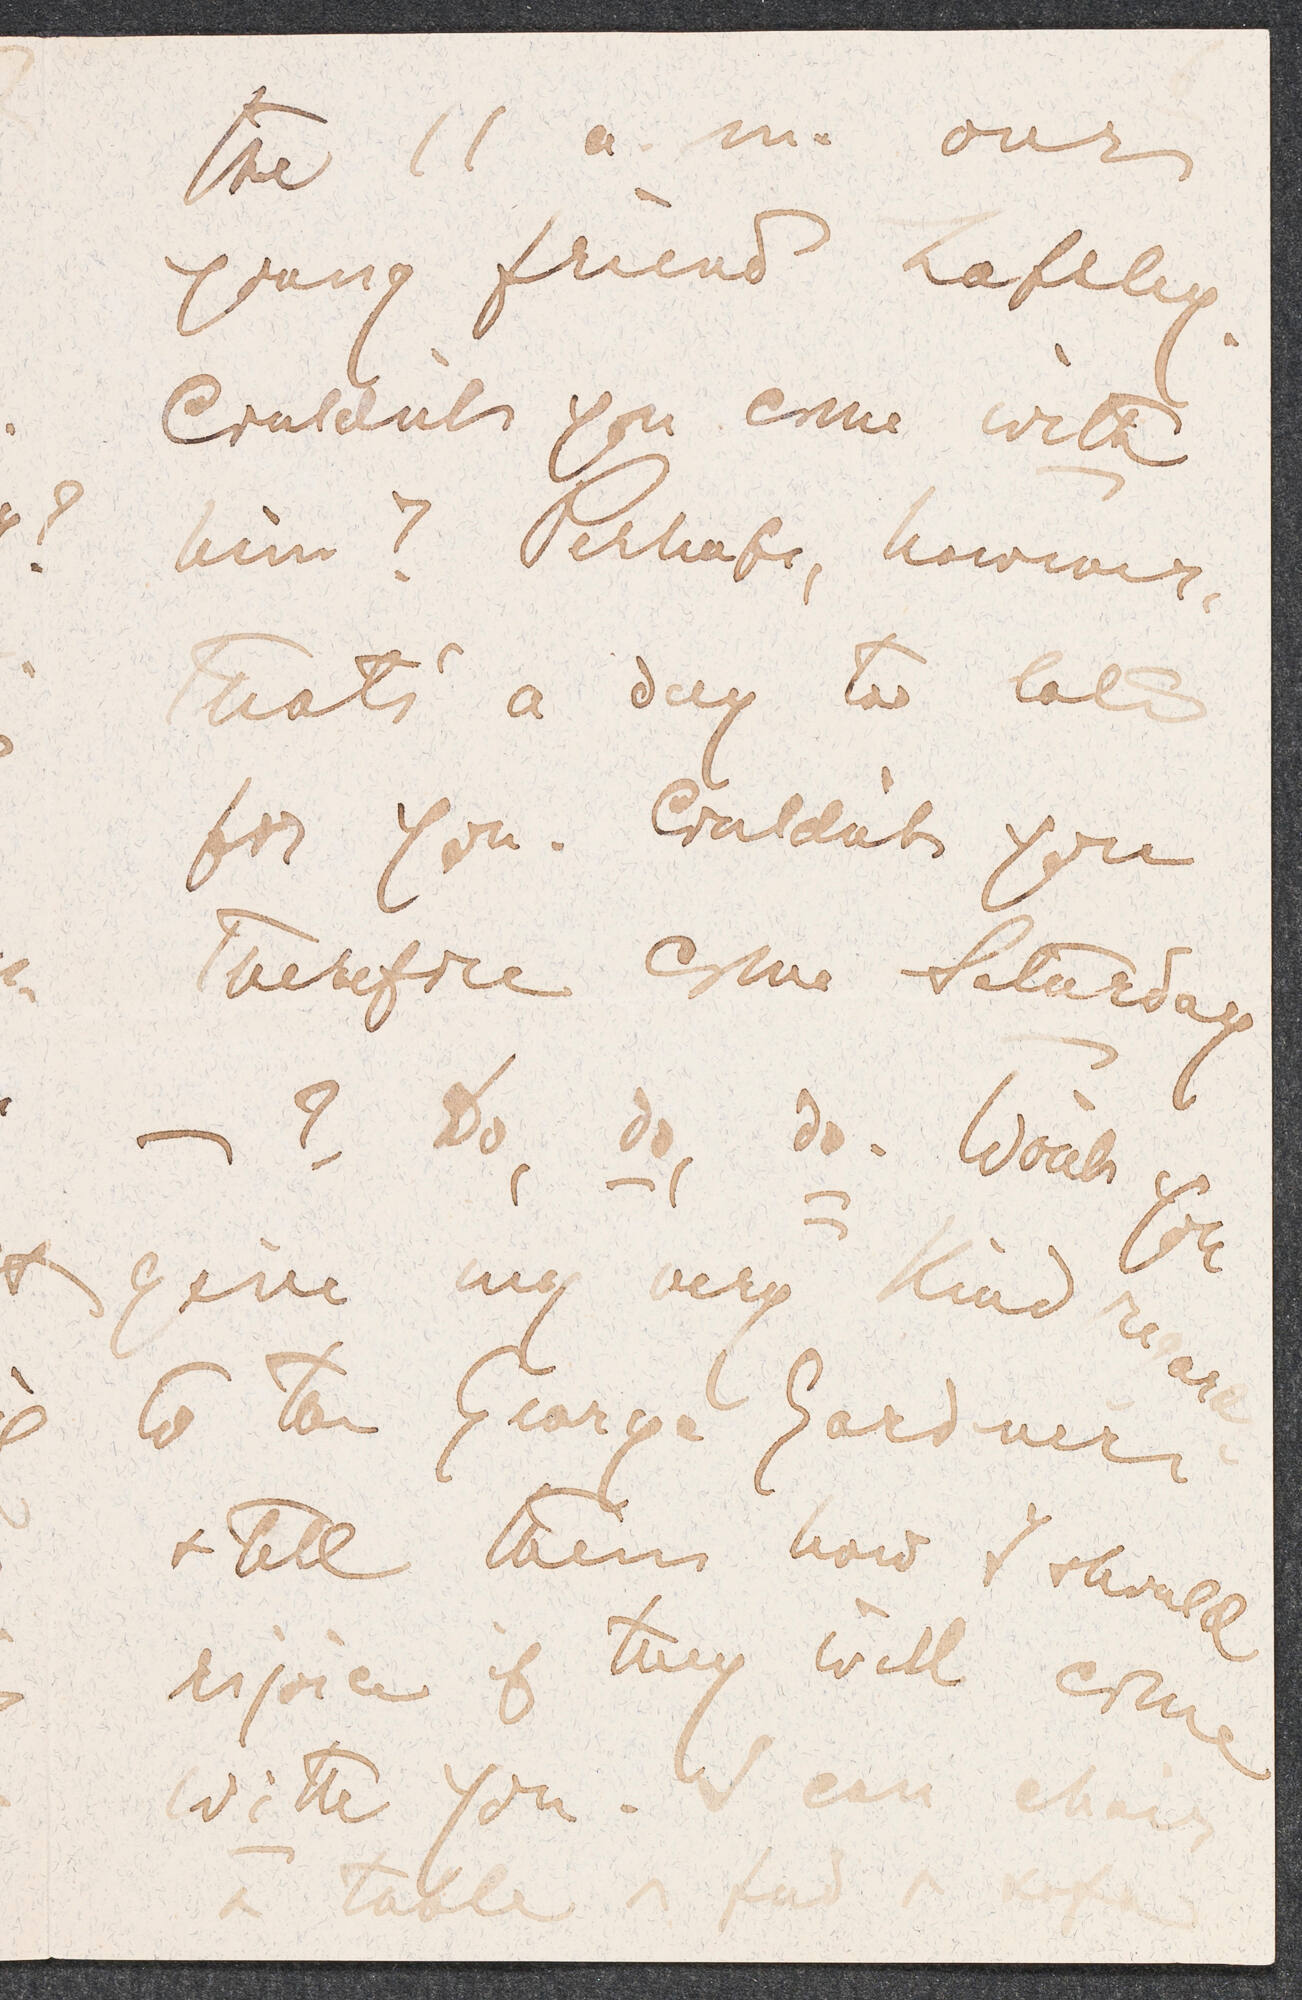 the 11 a.m. our
young friend Lapsley.
Couldn't you come with
him? Perhaps, however,
that's a day too late
for you. Couldn't you
therefore come Saturday
— ? Do, do, do. Won't you
give my very kind regards
to the George Gardners
& tell them how I should
rejoice if they will come
with you. I can chair
& table & feed & sofa